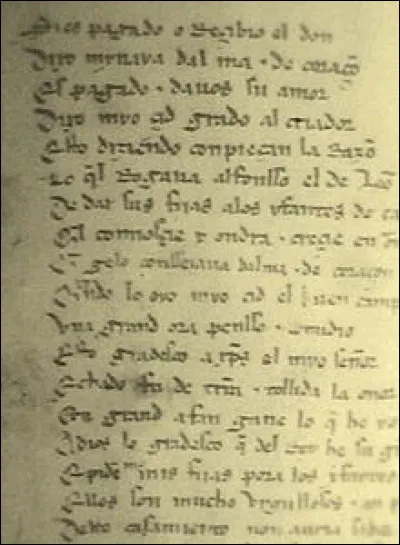 Si es pagado o Reçibio el don
Dixo mynaya dal ma ⁊ de coraçõ
Es pagado ⁊ dauos su amor
Dixo myo çid grado al criador
Esto diziendo conpieçan la Razõ
Lo q̃l Rogaua alfonsso el de Leõ
De dar sus fijas alos yfantes de ca
Q̃l connosçie y ondra ⁊ creçie en
Q̃ gelo conseiaua dalma ⁊ de coraçon
Quãdo lo oyo myo çid el buen camp
Vna grand ora pensso ⁊ comidio
Esto gradesco a xp̃s el myo señor
Echado fu de tr̃a ⁊ tollida la onor
Con grand afan gane lo q̃ he yo
A dios lo gradesco q̃ del Rey he su g
E piden mis fijas pora los yfantes
Ellos son mucho vrgullosos ⁊ an p
Deste casamiento non auria sabor